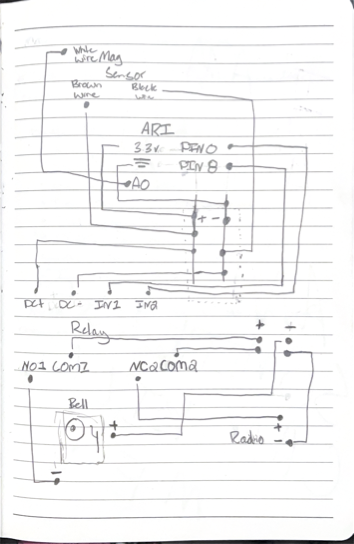 White
wire Mag
Sensor
Brown Black
wire wire
ARI
3.3v PIN 0
PIN 8
A0
+ -
DC+ DC- IN1 IN2
Relay + -
NO1 COM1 NC2 COM2
Bell
+
+
Radio -
-